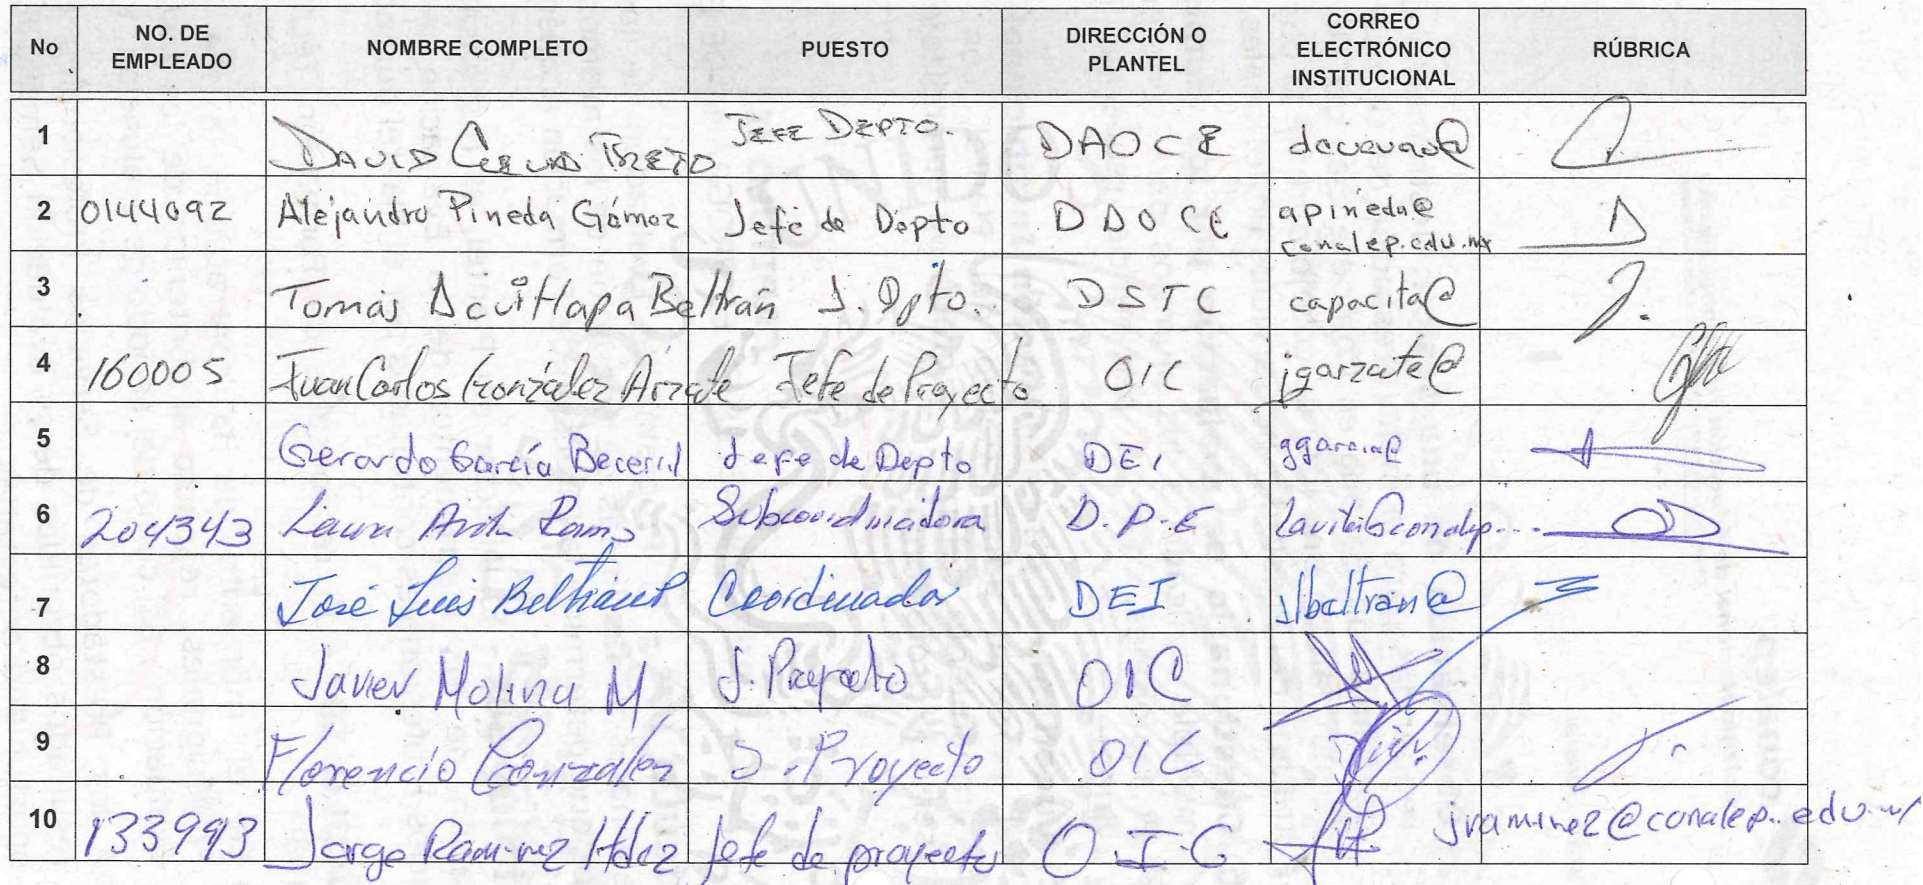 No NO. DE EMPLEADO NOMBRE COMPLETO PUESTO DIRECCIÓN O PLANTEL CORREO ELECTRÓNICO INSTITUCIONAL RÚBRICA
1 DAVID CUEVAS JEFE DEPTO. DAOCE dcuevas@
2 0144092 Alejandro Pineda Gómez Jefe de Depto DAOCE apineda@
conalep.edu.mx
3 Tomás Acuitlapa Beltrán J. Dpto. DSTC capacita@
4 160005 Juan Carlos González Arzate Jefe de Proyecto OIC jgarzate@
5 Gerardo García Becerril Jefe de Depto DEI ggarcia@
6 204343 Laura Avila Ramos Subcoordinadora D.P.E
7 José Luis Beltrán Coordinador DEI jlbeltran@
8 Javier Molina M J. Proyecto OIC
9 Florencio González J. Proyecto OIC
10 133993 Jorge Ramirez Hdez Jefe de proyecto O.I.C jramirez@conalep.edu.mx